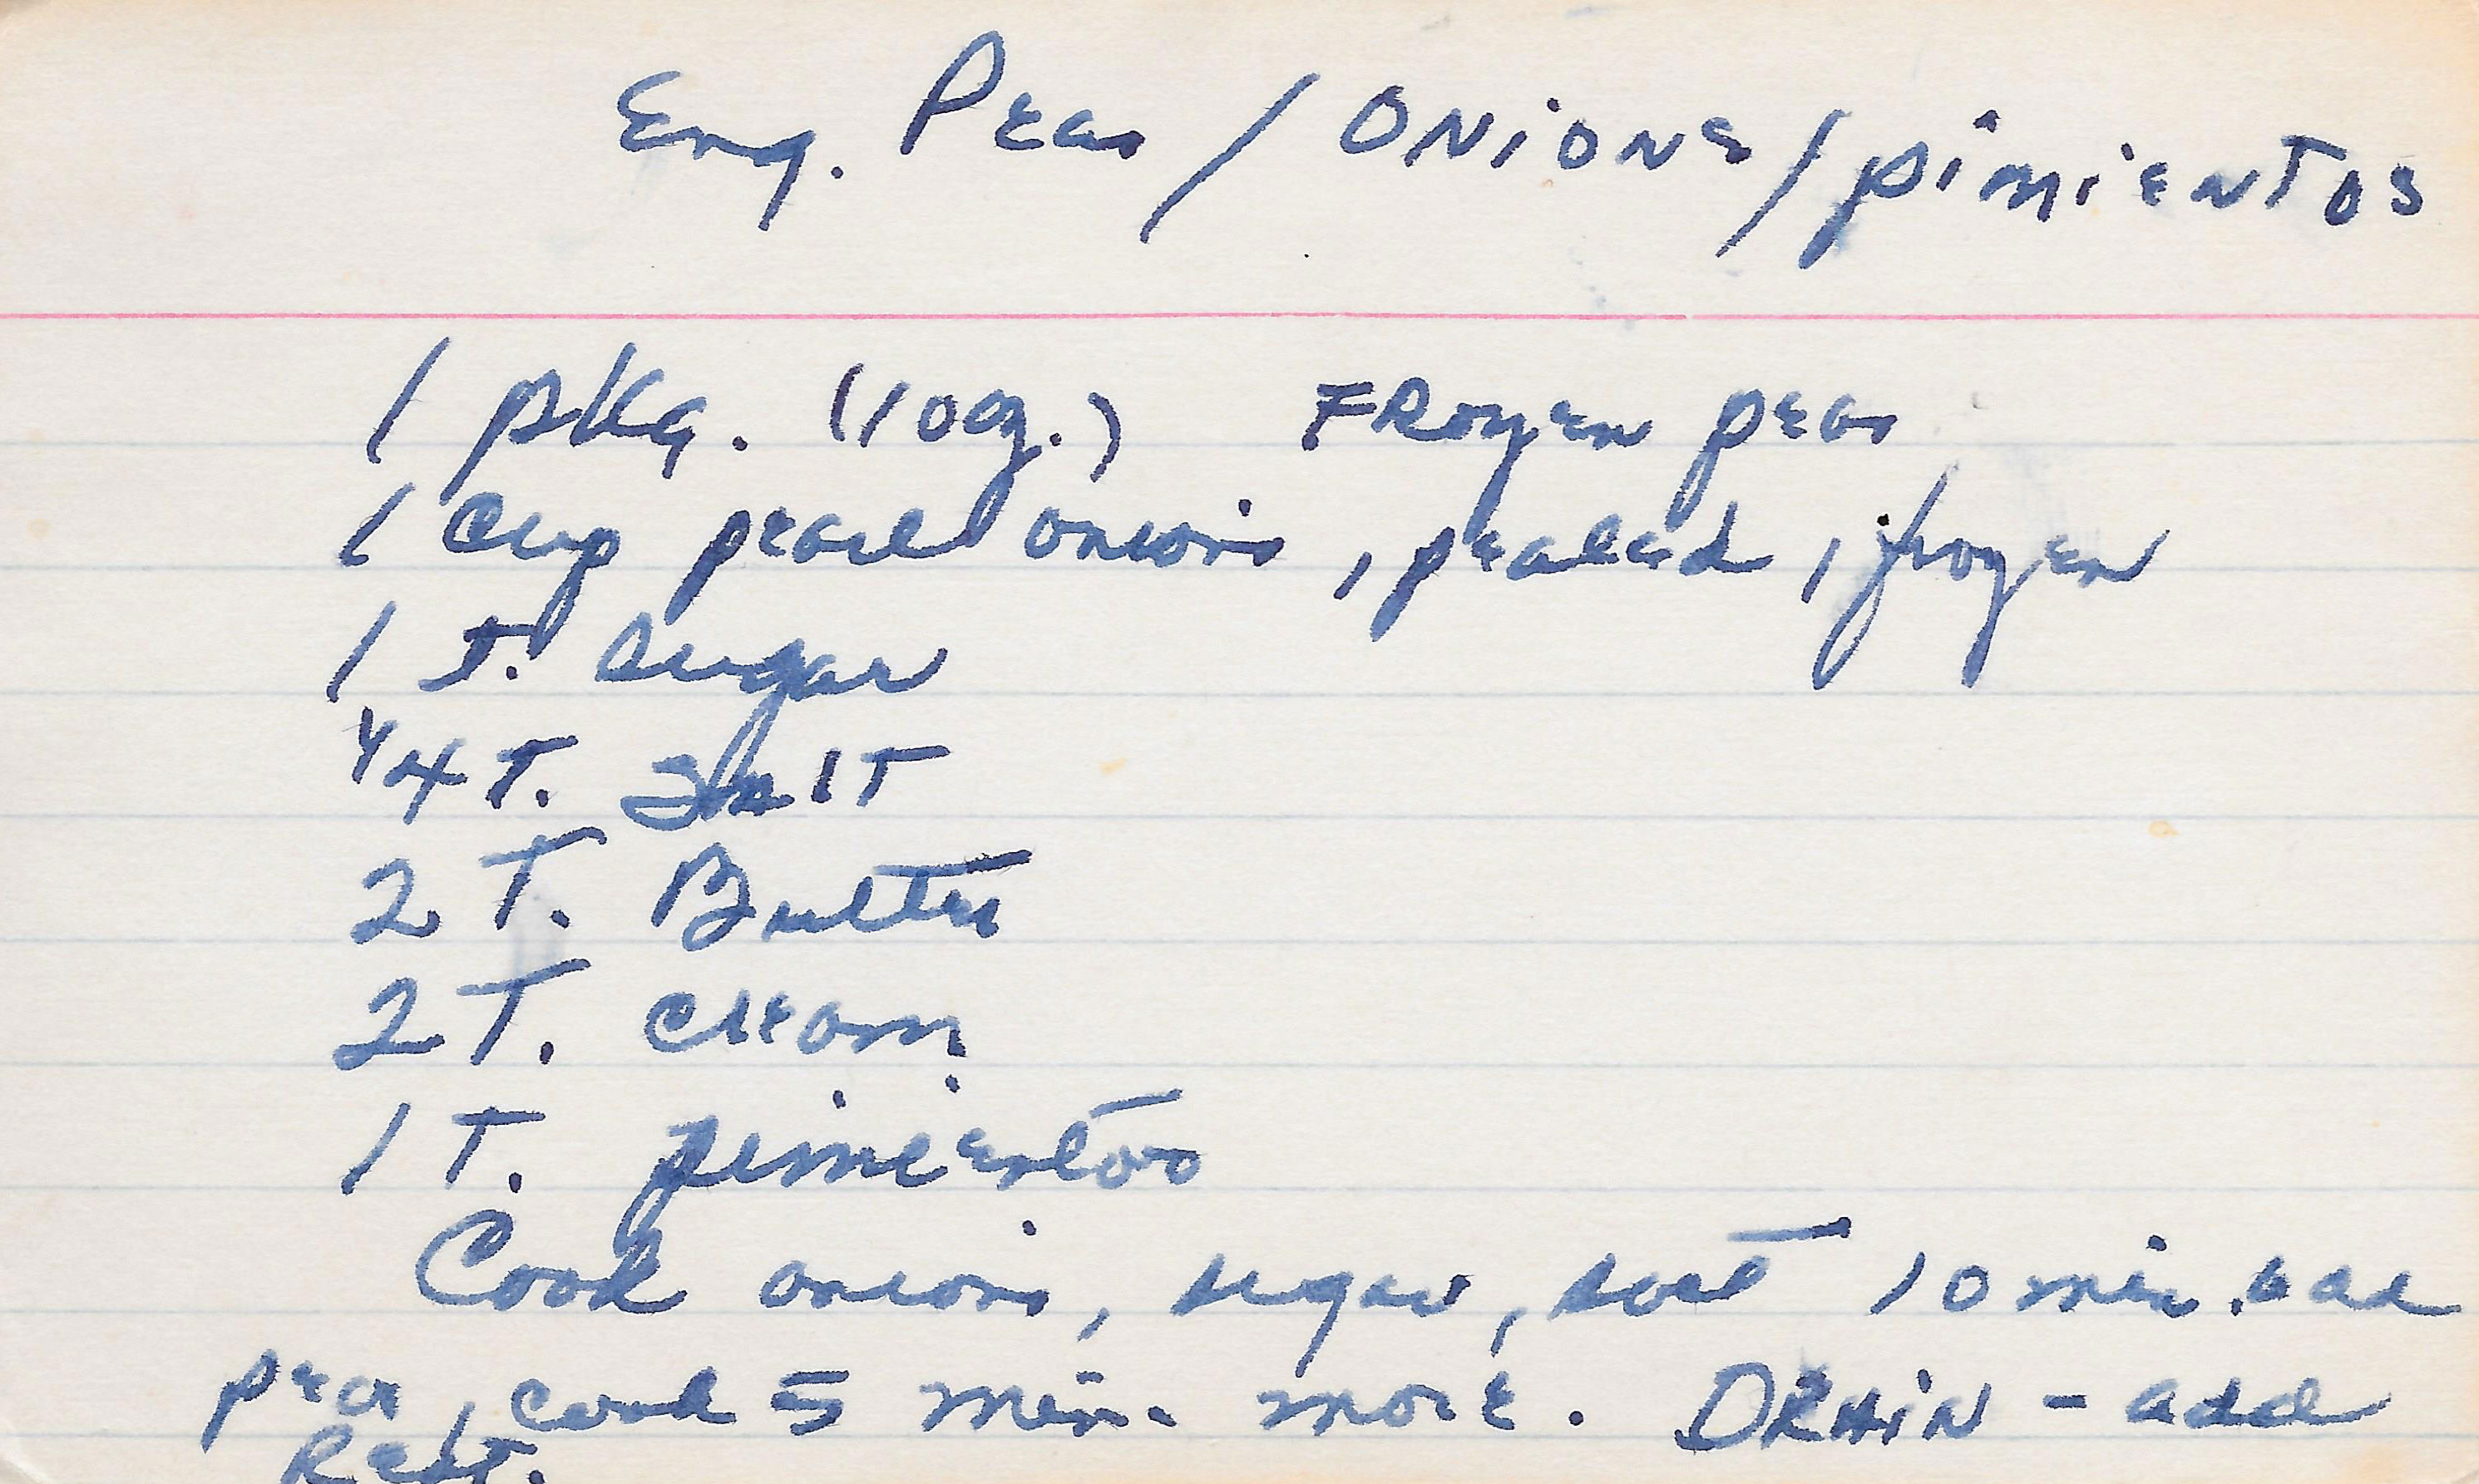 Eng. Peas / ONIONS / pimientos
1 pkg. (10oz.) FRozen peas
1 Cup pearl onions, pealed, frozen
1 T. Sugar
1/4 T. SalT
2 T. Butter
2 T. cream
1 T. pimientos
Cook onions, sugar, salt 10 min. add
peas, cook 5 min. more. DRAIN - add
Rest.